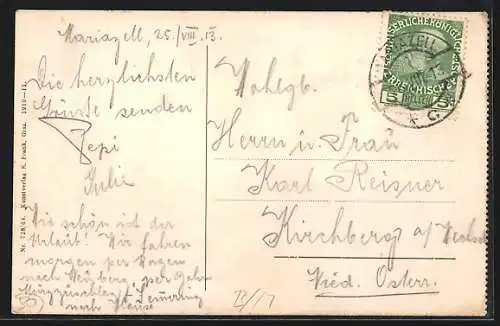 Mariazell, 25./VIII. 13.
Die herzlichsten
Grüße senden
Pepi
Julie
Wie schön ist der
Urlaub! Wir fahren
morgen per Wagen
nach Neuberg, per Bahn
Mürzzuschlag, Semmering
nach Hause
Nr. 728/64. Kunstverlag K. Frank, Graz. 1910—11.
KAISERLICHE KÖNIGLICHE
ÖSTERREICHISCHE
5 HELLER 5
MARIAZELL
* C *
Wohlgb.
Herrn u. Frau
Karl Reisner
Kirchberg a/
Nied. Österr.
B/17